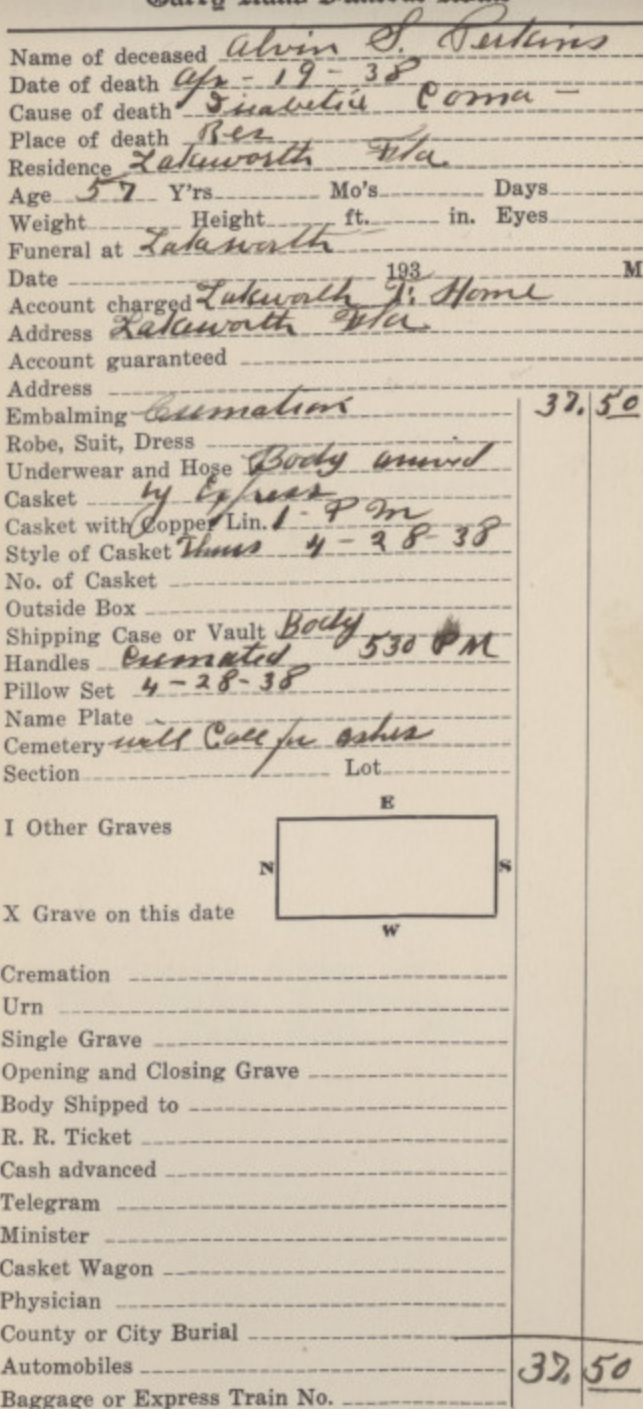 Carry Hand Funeral Home
Name of deceased Alvin S. Perkins
Date of death Apr-19-38
Cause of death Diabetic Coma -
Place of death Res
Residence Lakeworth Fla.
Age 57 Y'rs Mo's Days
Weight Height ft. in. Eyes
Funeral at Lakeworth
Date 193 M
Account charged Lakeworth F. Home
Address Lakeworth Fla
Account guaranteed
Address
Embalming Cremation 37.50
Robe, Suit, Dress
Underwear and Hose Body arrived
Casket by Express
Casket with Copper Lin. 1 - PM
Style of Casket Thurs 4-28-38
No. of Casket
Outside Box
Shipping Case or Vault Body
Handles Cremated 530 PM
Pillow Set 4-28-38
Name Plate
Cemetery will Call for ashes
Section Lot
E
I Other Graves
N S
X Grave on this date
W
Cremation
Urn
Single Grave
Opening and Closing Grave
Body Shipped to
R. R. Ticket
Cash advanced
Telegram
Minister
Casket Wagon
Physician
County or City Burial
Automobiles 37.50
Baggage or Express Train No.